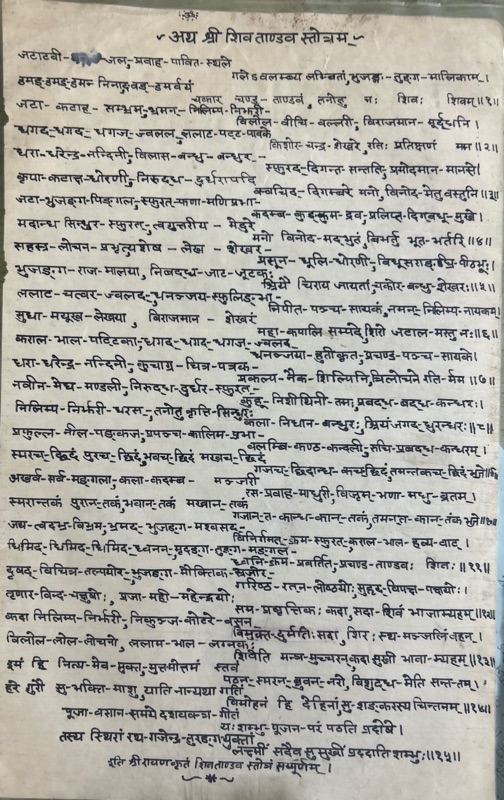 अथ श्री शिवताण्डव स्तोत्रम्
जटाटवी- -जल-प्रवाह-पावित-स्थले
गलेऽवलम्ब्य लम्बितां,भुजङ्ग-तुङ्ग-मालिकाम् ।
डमड्-डमड्-डमन् निनादवड्-डमर्वयं
चकार चण्ड-ताण्डवं तनोतु नः शिवः शिवम् ॥१॥
जटा-कटाह-सम्भ्रम,भ्रमन्-निलिम्प-निर्झरी-
विलोल-वीचि-वल्लरी, विराजमान-मूर्द्धनि ।
धगद्-धगद्-धगज्-ज्वलल्,ललाट-पट्ट-पावके
किशोर-चन्द्र-शेखरे,रतिः प्रतिक्षणं मम ॥२॥
धरा-धरेन्द्र-नन्दिनी,विलास-बन्धु-बन्धुर-
स्फुरद्-दिगन्त-सन्तति,प्रमोदमान-मानसे ।
कृपा-कटाक्ष-धोरणी,निरुद्ध-दुर्धरापदि
क्वचिद्-दिगम्बरे मनो,विनोद-मेतु वस्तुनि ॥३॥
जटा-भुजङ्ग-पिङ्गल,-स्फुरत्-फणा-मणि प्रभा-
कदम्ब-कुङ्कुम-द्रव,प्रलिप्त-दिग्वधू-मुखे ।
मदान्ध सिन्धुर-स्फुरत्,त्वगुत्तरीय-मेदुरे
मनो विनोद-मद्भुतं,बिभर्तु भूत-भर्तरि ॥४॥
सहस्त्र-लोचन-प्रभृत्यशेष-लेख-शेखर-
प्रसून-धूलि-धोरणी,विधूसराङ्घ्रि पीठभूः ।
भुजङ्ग-राज-मालया,निबद्ध-जाट-जूटकः
श्रियै चिराय जायतां,चकोर-बन्धु-शेखरः ॥५॥
ललाट-चत्वर-ज्वलद्-धनञ्जय-स्फुलिङ्ग-भा-
निपीत-पञ्च-सायकं,नमन्-निलिम्प-नायकम् ।
सुधा-मयूख-लेखया, विराजमान-शेखरं
महा-कपालि सम्पदे,शिरो जटाल-मस्तु नः ॥६॥
कराल-भाल-पट्टिका,धगद्-धगद्-धगज्-ज्वलद्-
धनञ्जया-हुतीकृत-प्रचण्ड-पञ्च-सायके ।
धरा-धरेन्द्र-नन्दिनी,कुचाग्र-चित्र-पत्रक-
प्रकल्प-नैक-शिल्पिनि,त्रिलोचने रति-र्मम ॥७॥
नवीन-मेघ-मण्डली,निरुद्ध-दुर्धर-स्फुरत्-
कुहू-निशीथिनी-तमः,प्रबन्ध-बद्ध-कन्धरः ।
निलिम्प-निर्झरी-धरस्-तनोतु कृत्ति-सिन्धुरः
कला-निधान-बन्धुरः,श्रियं जगद्-धुरन्धरः ॥८॥
प्रफुल्ल-नील-पङ्कज,प्रपञ्च-कालिम-प्रभा-
वलम्बि-कण्ठ-कन्दली,रुचि-प्रबद्ध-कन्धरम् ।
स्मरच्-छिदं पुरच्-छिदं,भवच्-छिदं मखच्-छिदं
गजच्-छिदान्ध कच्छिदं,तमन्तकच्-छिदं भजे ॥९॥
अखर्व-सर्व-मङ्गला,कला-कदम्ब-मञ्जरी
रस-प्रवाह-माधुरी,विजृम्-भणा-मधु-व्रतम् ।
स्मरान्तकं पुरान्-तकं,भवान्-तकं मखान्-तकं
गजान्-त-कान्ध-कान्-तकं,तमन्त-कान्-तकं भजे ॥१०॥
जय-त्वदभ्र-विभ्रम,भ्रमद्-भुजङ्ग-मश्वसद्-
विनिर्गमत्-क्रम-स्फुरत्-कराल-भाल-हव्य-वाट् ।
धिमिद्-धिमिद्-धिमिद्-ध्वनन्,मृदङ्ग-तुङ्ग-मङ्गल-
ध्वनि-क्रम-प्रवर्तित,प्रचण्ड-ताण्डवः शिवः ॥११॥
दृषद्-विचित्र-तल्पयोर्-भुजङ्ग-मौक्तिक-स्रजोर्-
गरिष्ठ-रत्न-लोष्ठयोः सुहृद्-विपक्ष-पक्षयोः ।
तृणार-विन्द-चक्षुषोः, प्रजा-मही-महेन्द्रयोः
सम-प्रवृत्तिकः कदा,सदा-शिवं भजाम्यहम् ॥१२॥
कदा निलिम्प-निर्झरी,निकुञ्ज-कोटरे-वसन्
विमुक्त-दुर्मतिः सदा, शिरः स्थ-मञ्जलिं वहन् ।
विलोल-लोल-लोचनो, ललाम-भाल-लग्नकः
शिवेति मन्त्र-मुच्चरन्,कदा सुखी भवा-म्यहम् ॥१३॥
इमं हि नित्य-मेव-मुक्त,मुत्तमोत्तमं स्तवं
पठन्-स्मरन्-ब्रुवन्-नरो,विशुद्ध-मेति सन्त-तम् ।
हरे गुरौ सु-भक्ति-माशु याति नान्यथा गतिं
विमोहनं हि देहिनां,सु-शङ्करस्य चिन्तनम् ॥१४॥
पूजा-वसान-समये दशवक्त्र-गीतं
यः शम्भु-पूजन-परं पठति प्रदोषे ।
तस्य स्थिरां रथ-गजेन्द्र-तुरङ्ग-युक्तां
लक्ष्मीं सदैव सुमुखीं प्रददाति शम्भुः ॥१५॥
इति श्री रावणकृतं शिवताण्डव स्तोत्रं सम्पूर्णम् ।